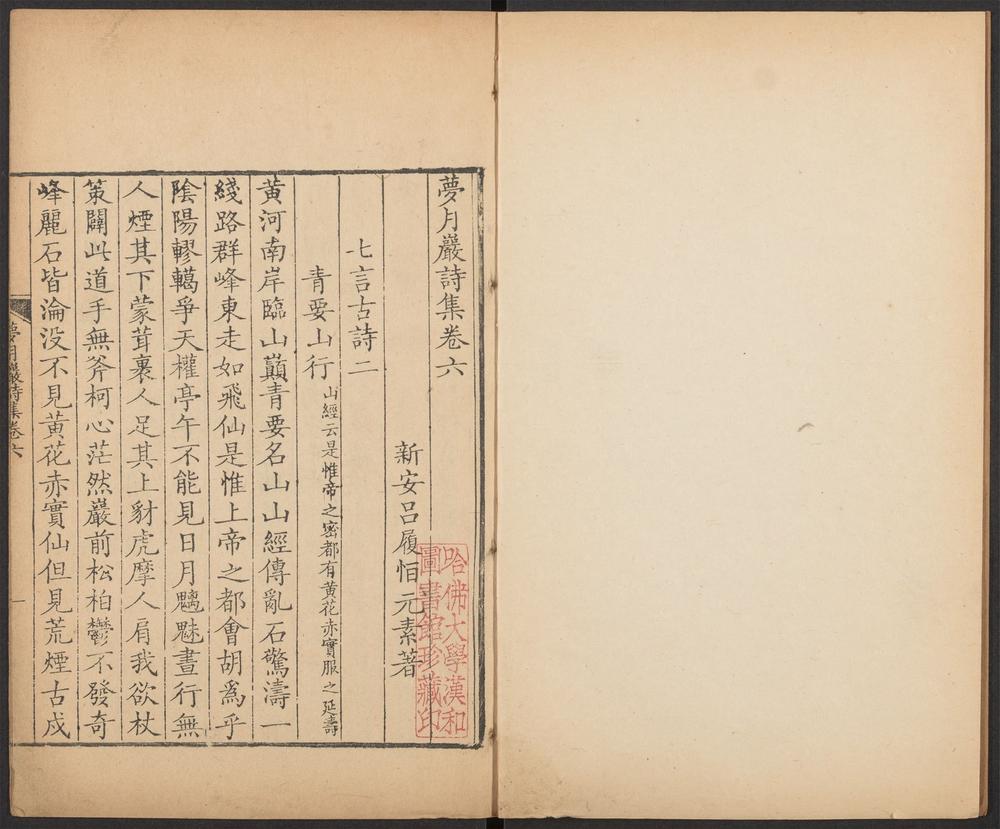 夢月巖詩集卷六
新安呂履恒元素著
七言古詩二
青要山行 山經云是惟帝之密都有黃花赤實服之延壽
黃河南岸臨山巔青要名山山經傳亂石驚濤一
綫路群峰東走如飛仙是惟上帝之都會胡爲乎
陰陽轇轕爭天權亭午不能見日月魑魅晝行無
人煙其下蒙茸裹人足其上豺虎摩人肩我欲杖
策闢此道手無斧柯心茫然巖前松柏鬱不發奇
峰麗石皆淪没不見黃花赤實仙但見荒煙古戍
夢月巖詩集卷六
一
哈佛大學漢和
圖書館珍藏印